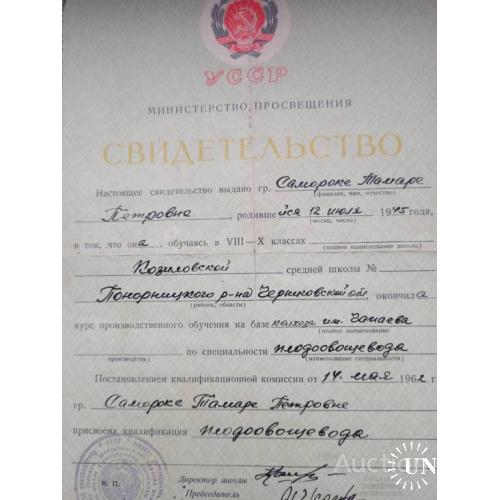 УССР
МИНИСТЕРСТВО ПРОСВЕЩЕНИЯ
СВИДЕТЕЛЬСТВО
Настоящее свидетельство выдано гр. Самороке Тамаре
(фамилия, имя, отчество)
Петровне, родившейся 12 июля 1945 года,
(месяц, число)
в том, что она, обучаясь в VIII—X классах
(полное наименование школы)
Козиловской средней школы №
Понорницкого р-на Черниговской обл, окончила
(района, области)
курс производственного обучения на базе колхоза им. Чапаева
(полное наименование
производства) по специальности плодоовощевода
(наименование специальности)
Постановлением квалификационной комиссии от 14 мая 1962 г.
гр. Самороке Тамаре Петровне
присвоена квалификация плодоовощевода
М. П.
Директор школы
Председатель
UN